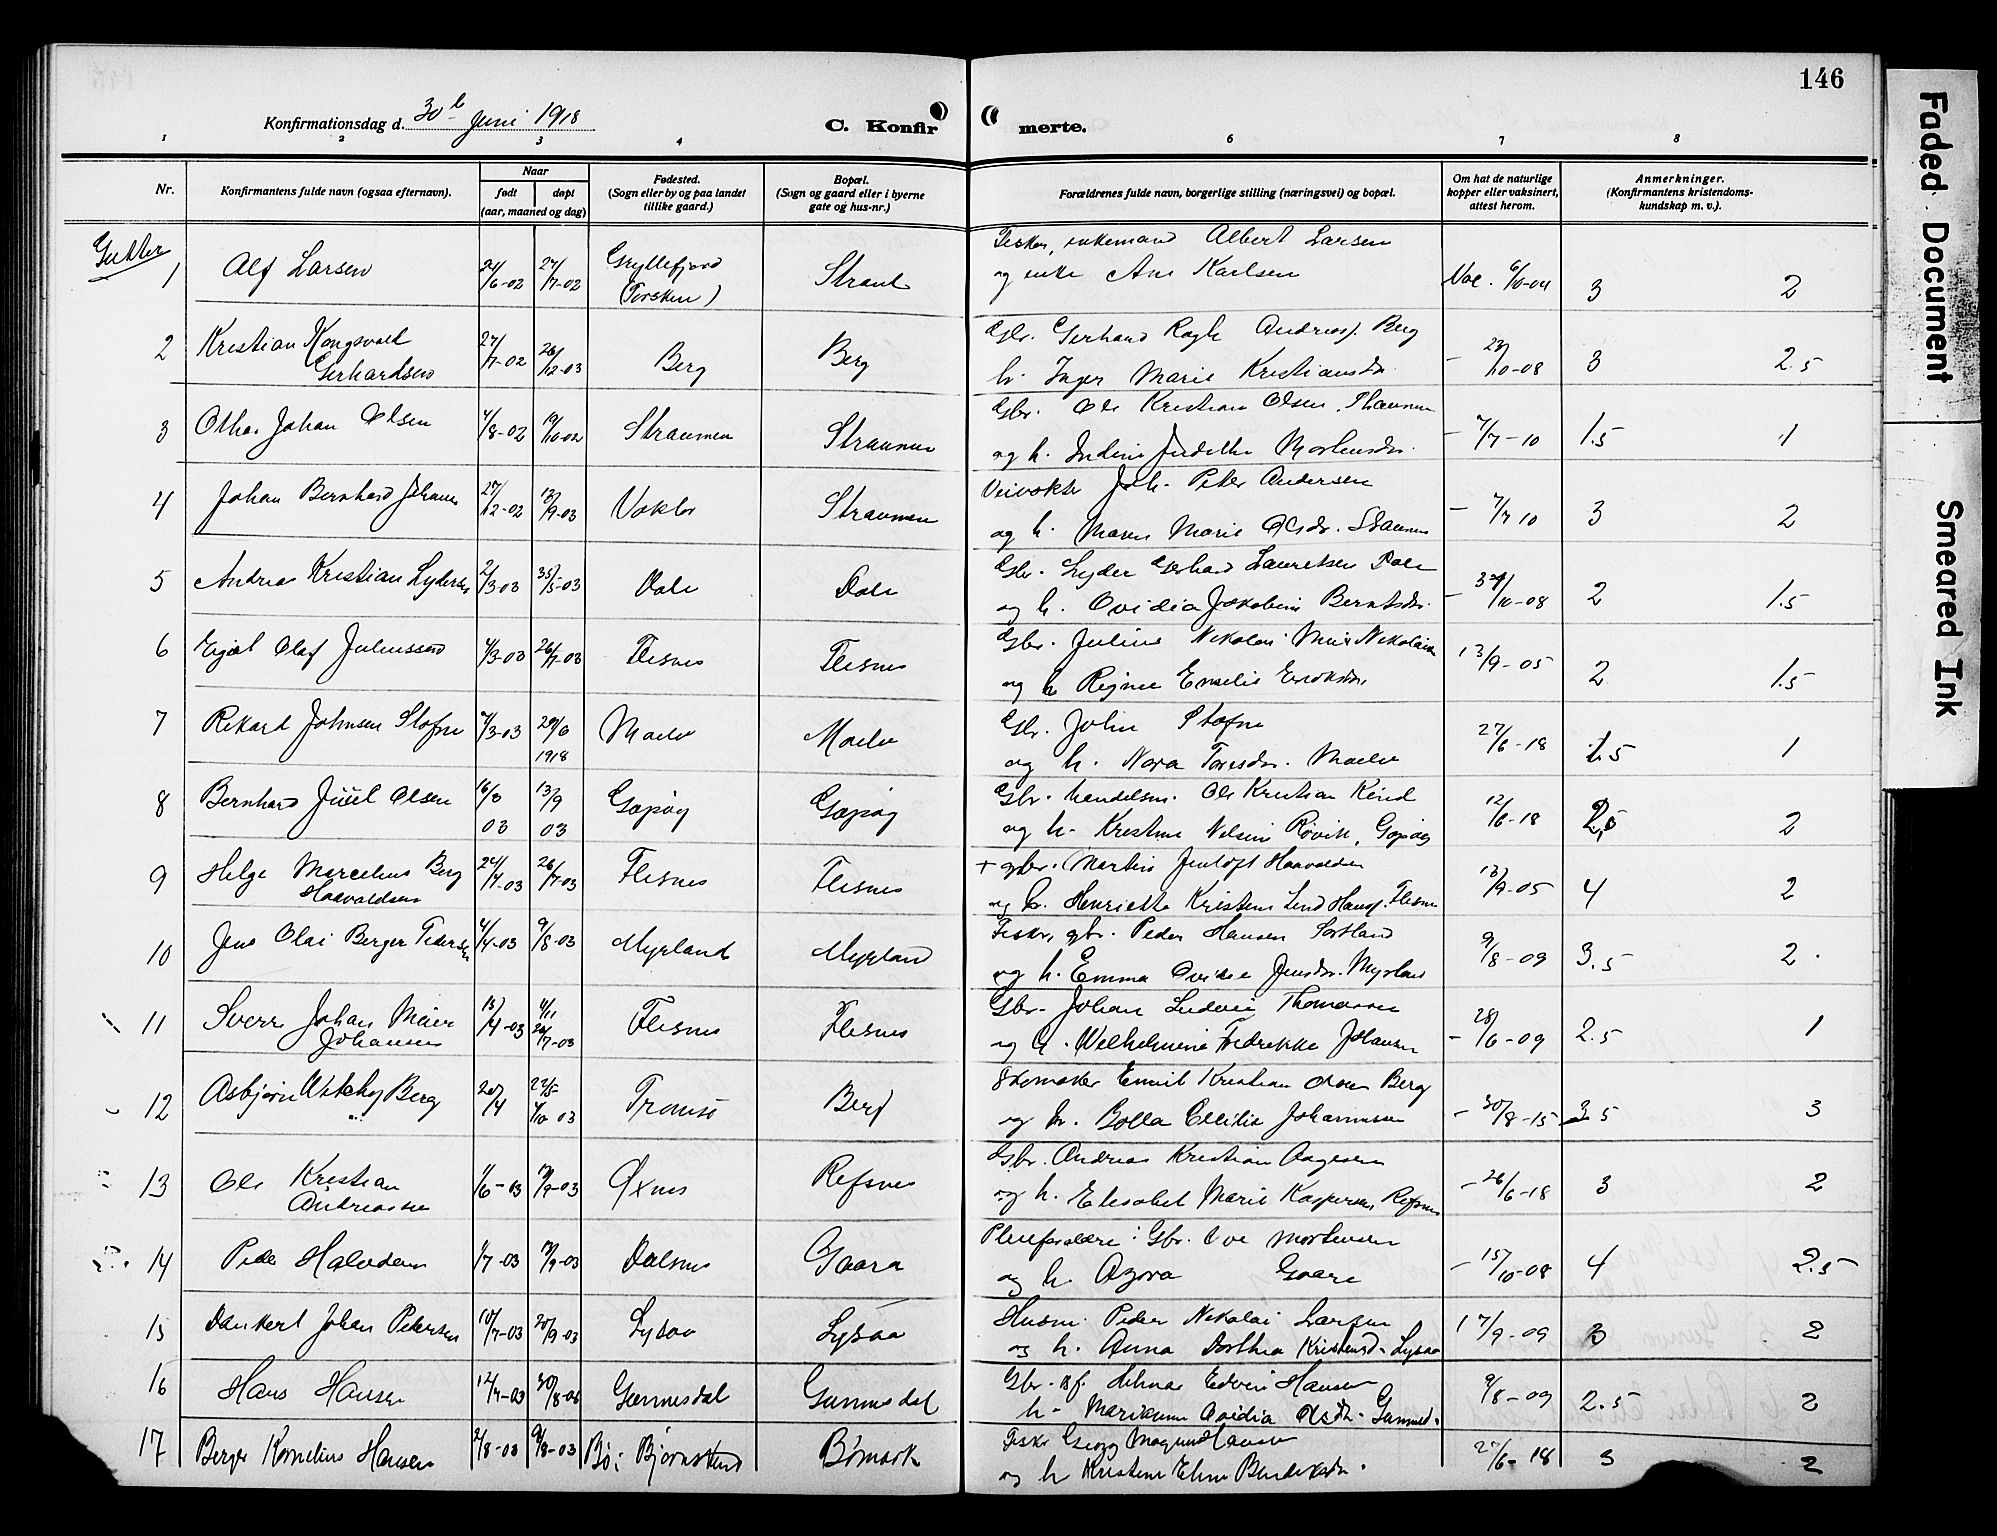 146
Konfirmationsdag d. 30te Juni 1918
C. Konfirmerte.
1 2 3 4 6 7 8
Nr. Konfirmantens fulde navn (ogsaa efternavn). Naar født døpt (aar, maaned og dag) Fødested. (Sogn eller by og paa landet tillike gaard.) Bopæl. (Sogn og gaard eller i byerne gate og hus-nr.) Forældrenes fulde navn, borgerlige stilling (næringsvei) og bopæl. Om hat de naturlige kopper eller vaksinert, attest herom. Anmerkninger. (Konfirmantens kristendomskundskap m. v.).
Gutter
1 Alf Larsen 24/6-02 27/7-02 Gryllefjord (Torsken) Straul Fisker, enkemand Albert Larsen
og enke Ane Karlsen Vac. 6/10-04 3 2
2 Kristian Kongsvolt Gerhardsen 27/7-02 26/12-03 Berg Berg Gbr. Gerhard Andreasf. Berg
h. Inger Marie Kristiansdr. - 23/10-08 3 2.5
3 Othar Johan Olsen 4/8-02 19/10-02 Straumen Straumen Gbr. Ole Kristian Olsen,
og h. Indine Judithe Mortensdr. - 7/7-10 1.5 1
4 Johan Bernhard Johans 27/12-02 13/9-03 Vokter Straumen Veivokter Joh. Peter Andersen
og h. Maren Marie Olsdr. Straumen - 7/7 10 3 2
5 Andreas Kristian Lydersen 2/3-03 Dale Dale Gbr. Lyder Lauritsen Dale
og h. Ovidia Jakobine Berntsdr. 2 1.5
6 Olaf Juliussen 4/3-03 26/7-03 Flesnes Flesnes Gbr. Julius Nikolai Meier Nikolaisen
og h Regine Emilie Eriksdr. 13/9-05 2 1.5
7 Rikard Johnsen Stofne 7/3-03 29/6 1918 Maelv Maelv Gbr. John Stofne
og h. Nora Toresdr. Maelv 27/6-18 1.5 1
8 Bernhard Juul Olsen 16/3 03 13/9 03 Gapøy Gapøy Gbr. handelsm. Ole Kristian Kind
og h. Kristine Nilsine Røvik, Gapøy 12/6-18 2,5 2
9 Helge Marcelius Berg Haavaldsen 24/4-03 26/7-03 Flesnes Flesnes + gbr. Martin Jentoft Haavaldsen
og h. Henriette Kristine Lind Hansf. Flesnes 13/9-05 4 2
10 Jens Olai Berger Pedersen 4/4-03 9/8-03 Myrland Myrland Fisker, gbr. Peder Hansen Sortland
og h. Emma Ovidie Jensdr. Myrland 9/8-09 3.5 2.
11 Sverre Johan Meier Johansen 13/4-03 4/11 26/7-03 Flesnes Flesnes Gbr. Johan Ludvig Thomassen
og h. Wilhelmine Fredrikke Johansen - 28/6-09 2.5 1
12 Asbjørn Berg 20/4 22/5 4/10 03 Tromsø Berg Skomaker Emil Kristian Olsen Berg
og h. Bolla Cecilie Johannesen - 30/8-15 3.5 3
13 Ole Kristian Andreassen 1/6-03 13/9-03 Øxnes Refsnes Gbr. Andreas Kristian Aagesen
og h. Elisabet Marie Kaspersen, Refsnes - 26/6-18 3 2
14 Peder Halvdan 1/7-03 13/9-03 Dalsnes Gaara Pleieforeldre: Gbr. Ove Mortensen
og h. Azora Gaara - 15/10-08 4 2.5
15 Dankert Johan Petersen 10/7-03 20/9-03 Lysaa Lysaa Husm. Peder Nikolai Larsen
og h. Anna Dorthea Kristensd. Lysaa 17/9-09 3 2
16 Hans Hansen 12/7-03 30/8-03 Gunnesdal Gunnesdal Gbr. & f. Hilmar Edvin Hansen
h. Marianne Ovidia Olsdtr. Gunnesd. 9/8-09 2.5 2
17 Berger Kornelius Hansen 2/8-03 9/8-03 Bø: Bjørnskind Bømark Fisker Georg Magnus Hansen
og h Kristine Eline Bendiksdr. 27/6-18 3 2
Faded Document
Smeared Ink